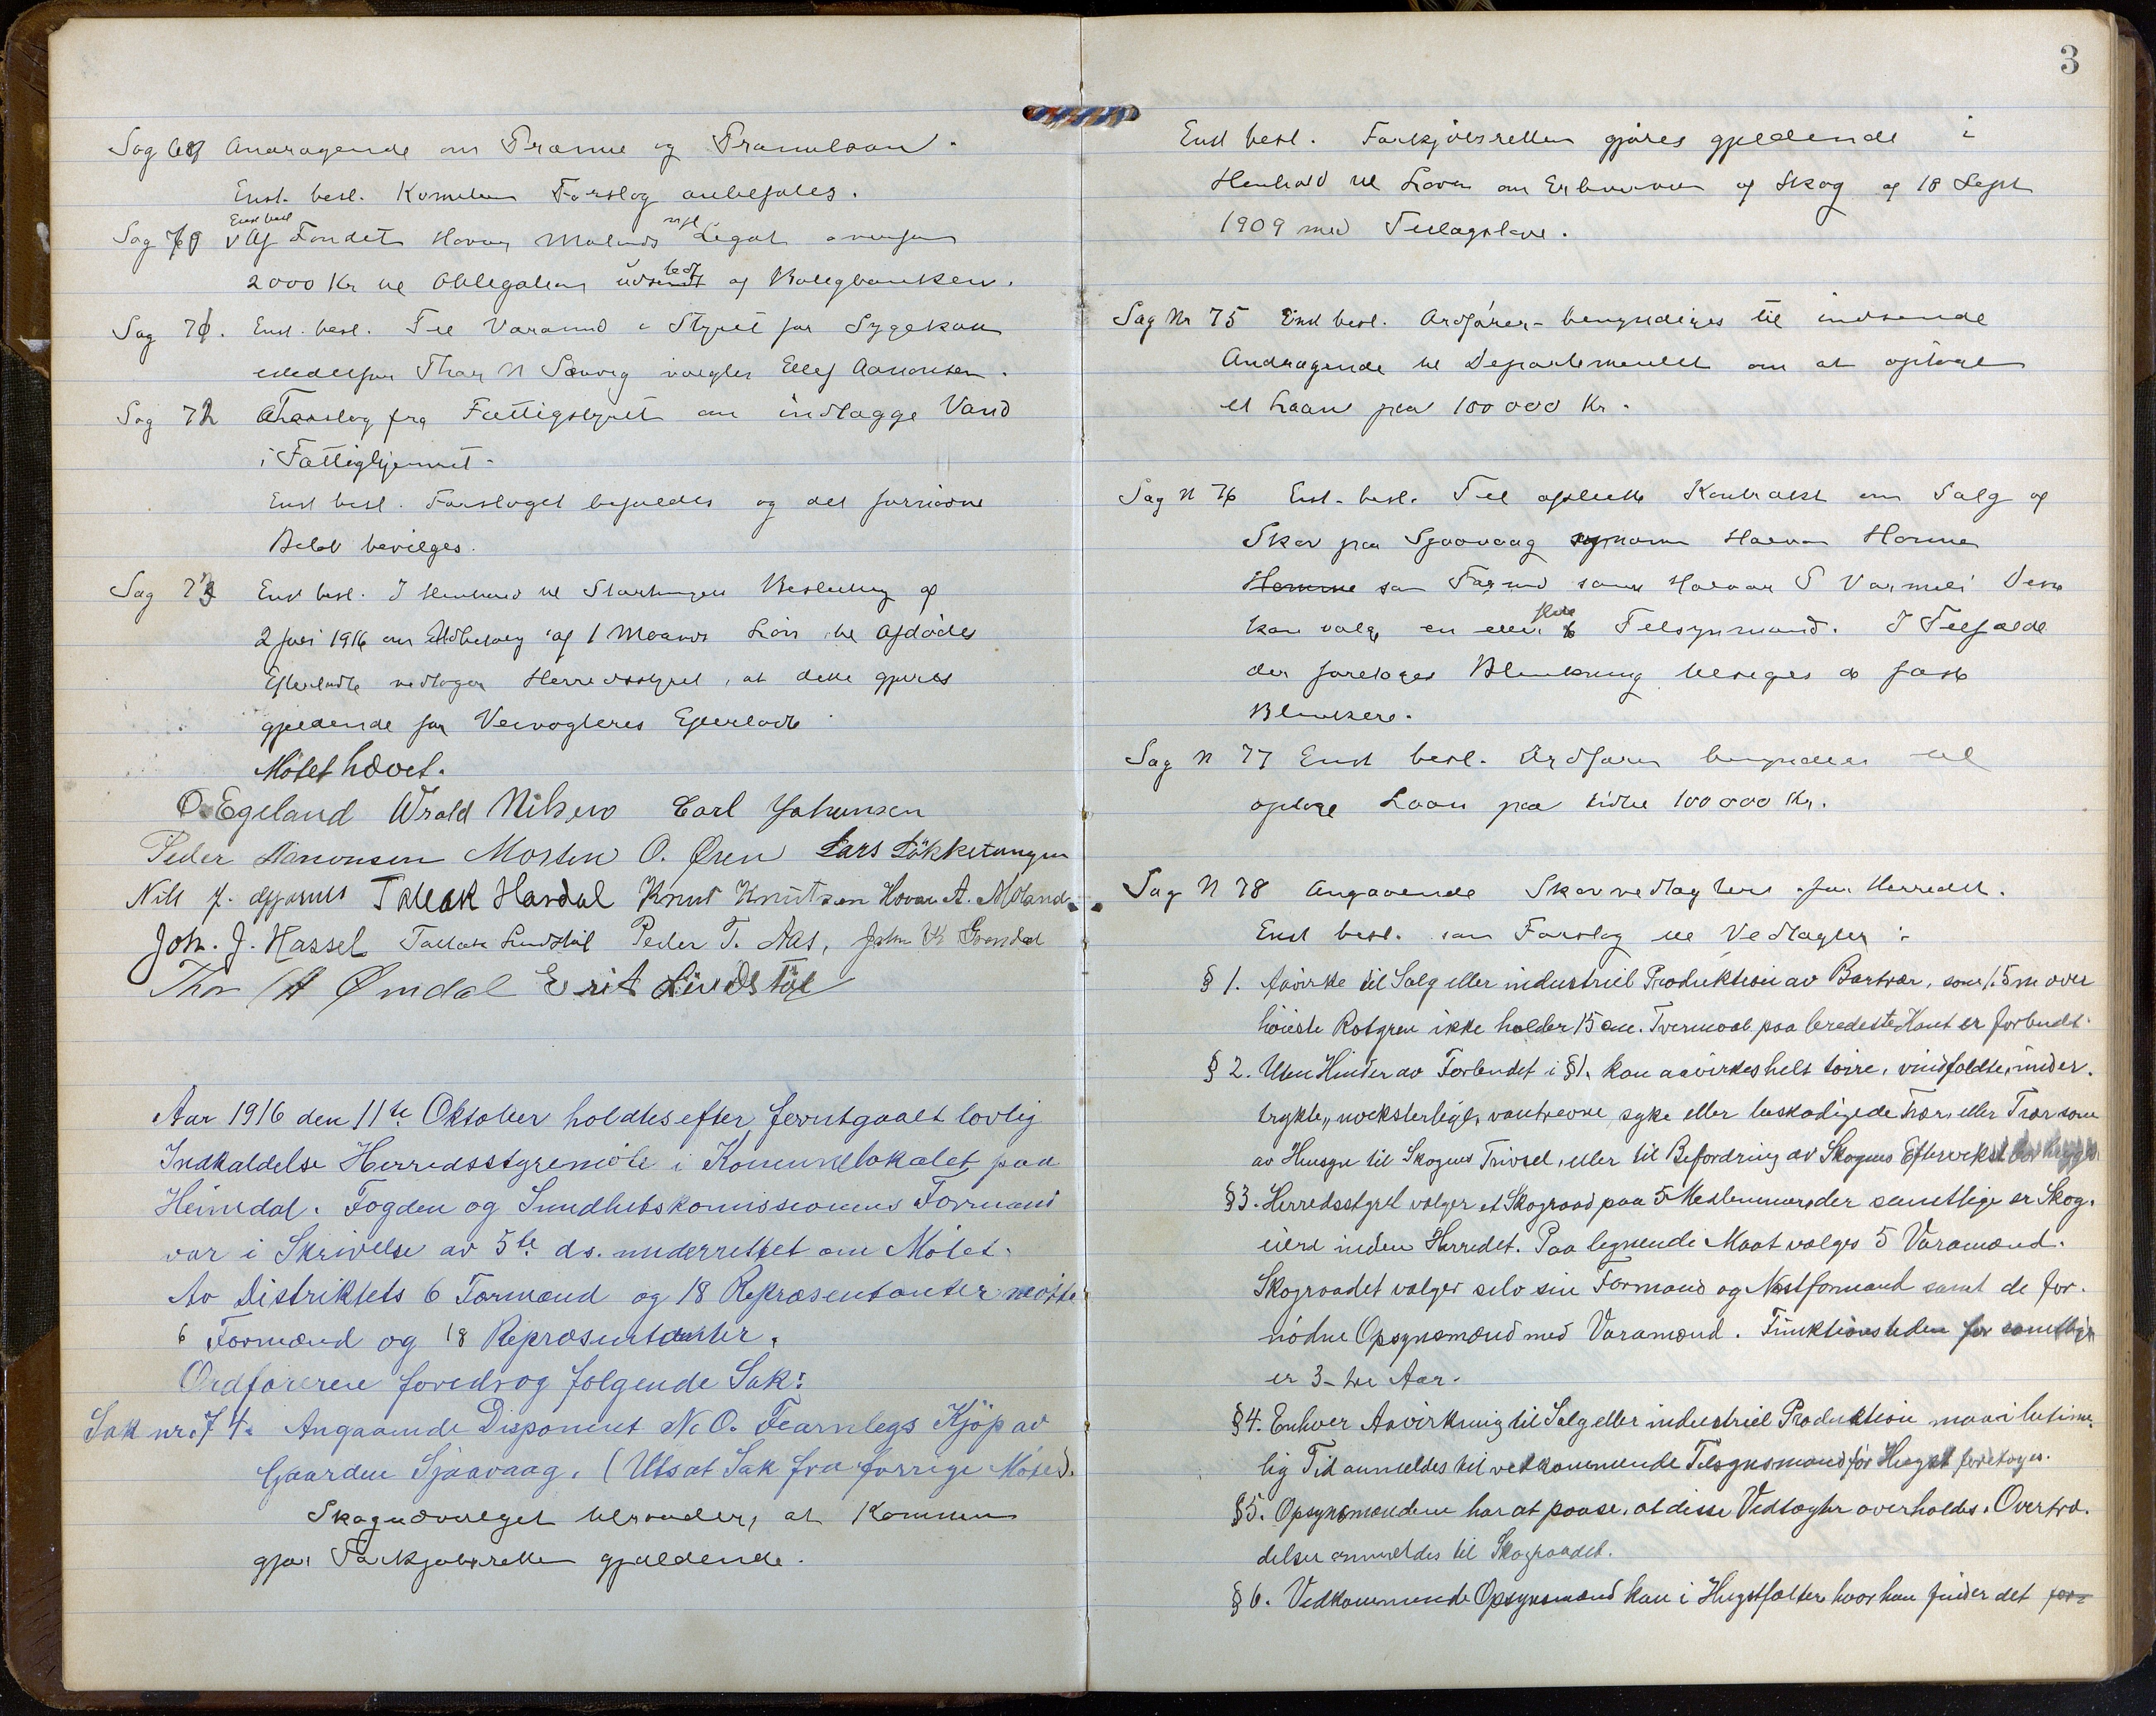 Sag 69 Andragende om Præmie og Præmielaan.
Enst. besl. Komiteens Forslag anbefales.
Enst besl
Sag 70 Af Fondet Hovar Molands Legat
2000 Kr til Obligation af Boligbanken.
Sag 71. Enst. besl. Til Varamd i Styret for Sygekassen
istedetfor Thor N Songe vælges Ellef Aanonsen.
Sag 72 Forslag fra Fattigstyret om indlægge Vand
i Fattighjemmet.
Enst besl. Forslaget og det fornødne
Beløb bevilges.
Sag 73 Enst besl. I Henhold til Stortingets Beslutning af
2 Juni 1916 om Udbetaling af 1 Maaneds Løn til Afdødes
Efterladte vedtager Herredsstyret, at dette gjøres
gjeldende for Veivogteres Efterladte
Møtet hævet.
O. Egeland Wrold Nilsen Carl Johansen
Peder Aanonsen Morten O. Øren Lars Løkketangen
Nils J. Tallak Havdal Knut Knutsen Hovar A. Moland
Joh. J. Hassel Tallak Lindtøl Peder T. Næs, John K
Thor A Ømdal Erik Lindtøl
Aar 1916 den 11te Oktober holdtes efter forutgaaet lovlig
Indkaldelse Herredsstyremøte i Komunelokalet paa
Heimdal. Fogden og Sundhetskomissionens Formand
var i Skrivelse av 5te ds. underrettet om Møtet.
Av Distriktets 6 Formænd og 18 Repræsentanter møtte
6 Formænd og 18 Repræsentanter.
Ordføreren foredrog følgende Sak:
Sak nr. 74. Angaaende Disponent N. O. Fearnlegs Kjøp av
Gaarden Sjaavaag. (Utsat Sak fra forrige Møte).
Skogudvalget tilraader, at Kommunen
gjør Forkjøbsretten gjældende.
3
Enst besl. Forkjøbsretten gjøres gjeldende i
Henhold til Loven om Erhvervelse af Skog af 18 Sept
1909 med Tillægslove.
Sag Nr 75 Enst besl. Ordfører bemyndiges til indsende
Andragende til Departementet om at optage
et Laan paa 100 000 Kr.
Sag N 76 Enst. besl. Til oprette Kontrakt om Salg af
Skov paa Sjaavaag Halvor Homme
Homme som Formd samt Halvor S Varmeli Disse
kan vælge en eller flere Tilsynsmænd. I Tilfælde
der foretages Blinkning de faste
Blinkere.
Sag N 77 Enst besl. Ordfører bemyndiges til
optage Laan paa 100 000 Kr.
Sag N 78 Angaaende Skovvedtægter for Herredet.
Enst besl. som Forslag til Vedtægter:
§ 1. Avvirke til Salg eller industriel Produktion av Bartrær, som 1.5 m over
høieste Rotgren ikke holder 15 cm. Tvermaal paa bredeste Kant er forbudt.
§ 2. Uten Hinder av Forbudet i § 1. kan avvirkes helt tørre, vindfældte, under-
trykte, vantrevne, syke eller beskadigede Trær, eller Trær som
av Hensyn til Skogens Trivsel, eller til Befordring av Skogens Eftervekst bør hugges
§3. Herredsstyret vælger et Skograad paa 5 Medlemmer der samtlige er Skog-
eiere inden Herredet. Paa lignende Maat vælges 5 Varamænd.
Skograadet vælger selv sin Formand og Næstformand samt de for-
nødne Opsynsmænd med Varamænd. Funktionstiden for samtlige
er 3- tre Aar.
§4. Enhver Avvirkning til Salg eller industriel Produktion maa i betime-
lig Tid anmeldes til vedkommende Tilsynsmand før Hugst foretages.
§5. Opsynsmændene har at paase, at disse Vedtægter overholdes. Overtræ-
delser anmeldes til Skograadet.
§ 6. Vedkommende Opsynsmand kan i Hugstfelter hvor han finder det for-